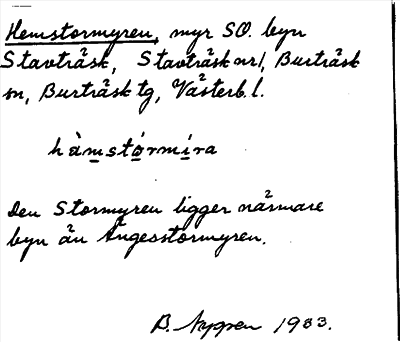 Hemstormyren, myr SO. byn
Stavträsk, Stavträsk nr 1, Burträsk
sn, Burträsk tg, Västerb. l.
hàmstórmira
Den Stormyren ligger närmare
byn än Ängesstormyren.
B. Nygren 1933.